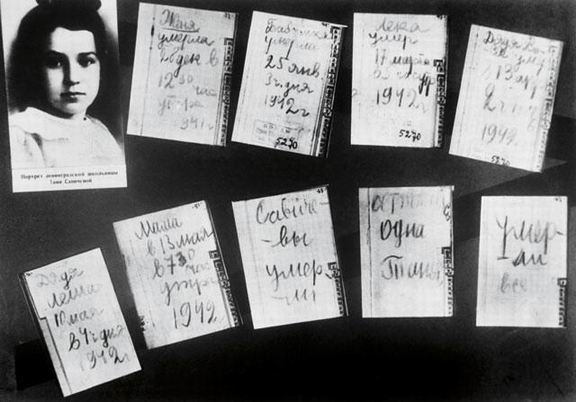 Портрет ленинградской школьницы
Тани Савичевой
Женя
умерла
28 дек в
12 30 час
утра
1941 г
Бабушка
умерла
25 янв
3 ч. дня
1942 г
5270
Лека
умер
17 марта
1942 г
5270
Дядя
умер
13 апр
2 ч
1942
5270
Дядя
Леша
10 мая
в 4 ч дня
1942
Мама
в 13 мая
в 7 30 час
утра
1942
Савиче
-вы
умер
-ли
одна
Таня
Умер-
ли
все